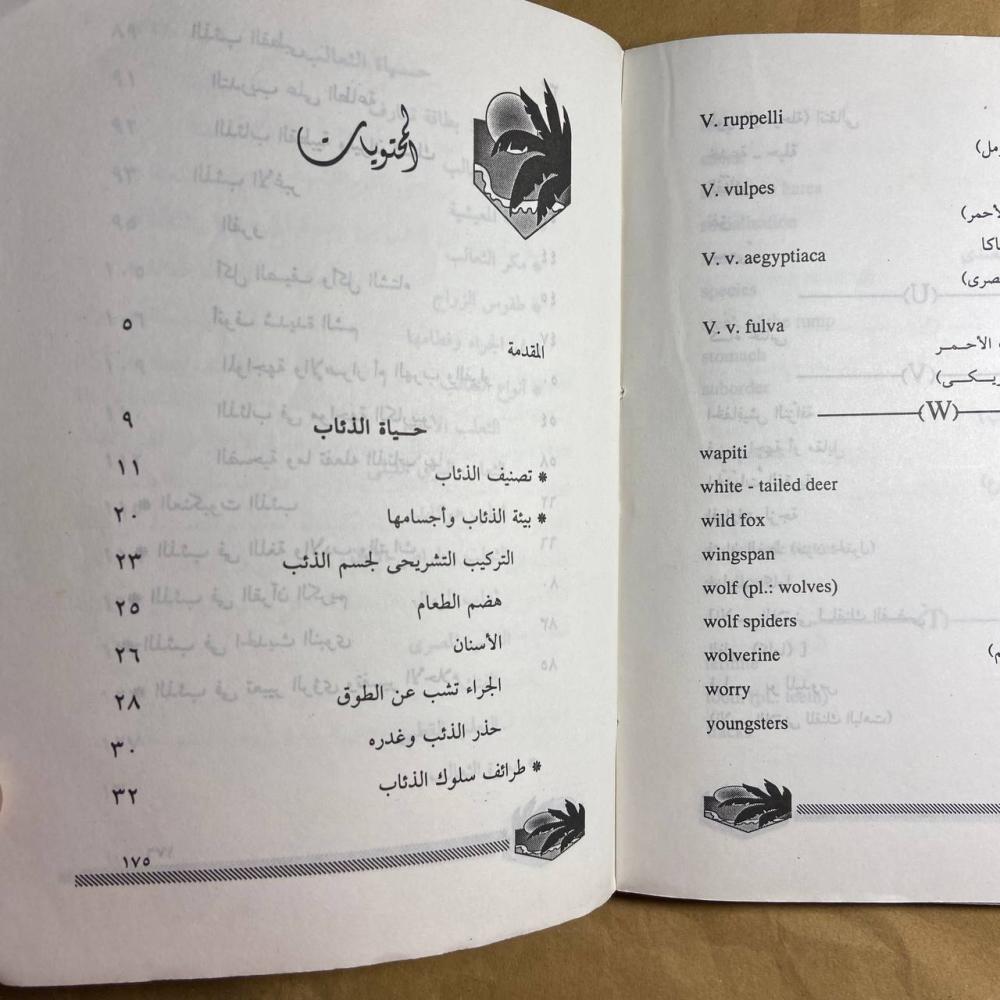 المحتويات
المقدمة ٥
حياة الذئاب ٩
* تصنيف الذئاب ١١
* بيئة الذئاب وأجسامها ٢٠
التركيب التشريحى لجسم الذئب ٢٣
هضم الطعام ٢٥
الأسنان ٢٦
الجراء تشب عن الطوق ٢٨
حذر الذئب وغدره ٣٠
* طرائف سلوك الذئاب ٣٢
١٧٥
V. ruppelli
V. vulpes
V. v. aegyptiaca
V. v. fulva
(W)
wapiti
white - tailed deer
wild fox
wingspan
wolf (pl.: wolves)
wolf spiders
wolverine
worry
youngsters